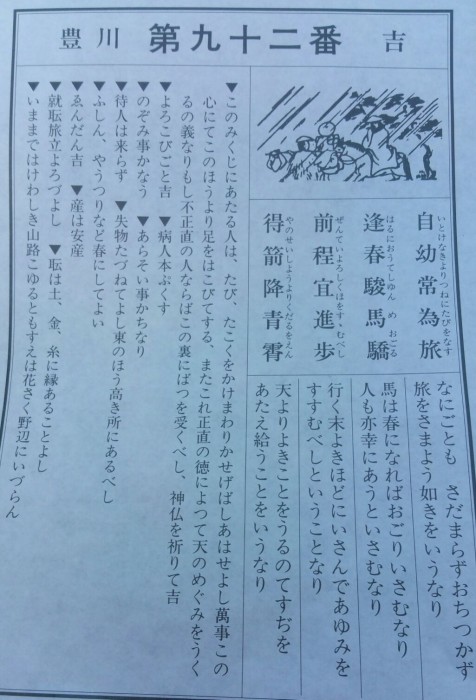 豊川 第九十二番 吉
自幼常為旅
いとけなきよりつねにたびをなす
逢春駿馬驕
はるにおうてしゆんめおごる
前程宜進歩
ぜんていよろしくほをすゝむべし
得箭降青霄
やのせいしようよりくだるをえん
なにごとも さだまらずおちつかず
旅をさまよう如きをいうなり
馬は春になればおごりいさむなり
人も亦幸にあうといさむなり
行く末よきほどにいさんであゆみを
すすむべしということなり
天よりよきことをうるのてすぢを
あたえ給うことをいうなり
▼このみくじにあたる人は、たび、たこくをかけまわりかせげばしあはせよし萬事この
心にてこのほうより足をはこびてする、またこれ正直の徳によつて天のめぐみをうく
るの義なりもし不正直の人ならばこの裏にばつを受くべし、神仏を祈りて吉
▼よろこびごと吉 ▼病人本ぷくす
▼のぞみ事かなう ▼あらそい事かちなり
▼待人は来らず ▼失物たづねてよし東のほう高き所にあるべし
▼ふしん、やうつりなど春にしてよい
▼ゑんだん吉 ▼産は安産
▼就職旅立よろづよし ▼職は土、金、糸に縁あることよし
▼いままではけわしき山路こゆるともすえは花さく野辺にいづらん